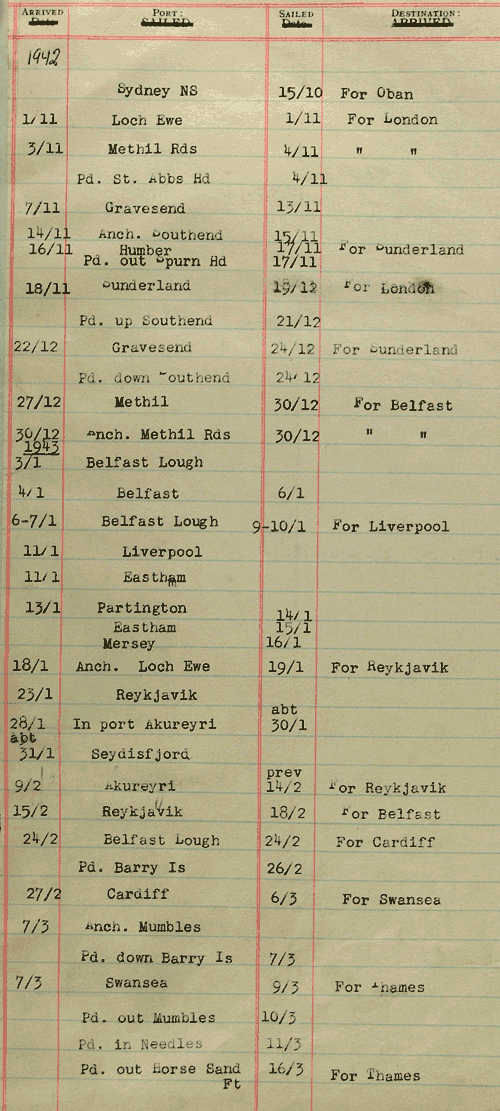 ARRIVED PORT: SAILED DESTINATION:
Date SAILED Date ARRIVED
1942
Sydney NS 15/10 For Oban
1/11 Loch Ewe 1/11 For London
3/11 Methil Rds 4/11 " "
Pd. St. Abbs Hd 4/11
7/11 Gravesend 13/11
14/11 Anch. Southend 15/11
16/11 Humber 17/11 For Sunderland
Pd. out Spurn Hd 17/11
18/11 Sunderland 19/12 For London
Pd. up Southend 21/12
22/12 Gravesend 24/12 For Sunderland
Pd. down Southend 24/12
27/12 Methil 30/12 For Belfast
30/12 Anch. Methil Rds 30/12 " "
1943
3/1 Belfast Lough
4/1 Belfast 6/1
6-7/1 Belfast Lough 9-10/1 For Liverpool
11/1 Liverpool
11/1 Eastham
13/1 Partington 14/1
Eastham 15/1
Mersey 16/1
18/1 Anch. Loch Ewe 19/1 For Reykjavik
23/1 Reykjavik
abt
28/1 In port Akureyri 30/1
abt
31/1 Seydisfjord
prev
9/2 Akureyri 14/2 For Reykjavik
15/2 Reykjavik 18/2 For Belfast
24/2 Belfast Lough 24/2 For Cardiff
Pd. Barry Is 26/2
27/2 Cardiff 6/3 For Swansea
7/3 Anch. Mumbles
Pd. down Barry Is 7/3
7/3 Swansea 9/3 For Thames
Pd. out Mumbles 10/3
Pd. in Needles 11/3
Pd. out Horse Sand 16/3 For Thames
Ft